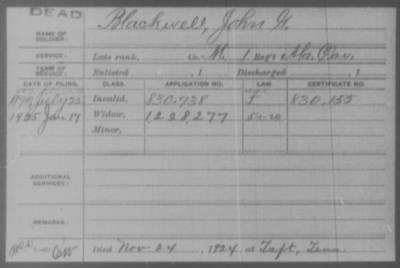 DEAD
NAME OF SOLDIER: Blackwell, John G.
SERVICE: Late rank, Co. M, 1 Reg't Ala. Cav.
TERM OF SERVICE: Enlisted , 1 Discharged , 1
DATE OF FILING. CLASS. APPLICATION NO. LAW CERTIFICATE NO.
July 25 Invalid, 830,738 830,155
1925 Jan 17 Widow, 1228277
Minor,
ADDITIONAL SERVICES:
REMARKS:
Died Nov 24, 1924, at Taft, Tenn